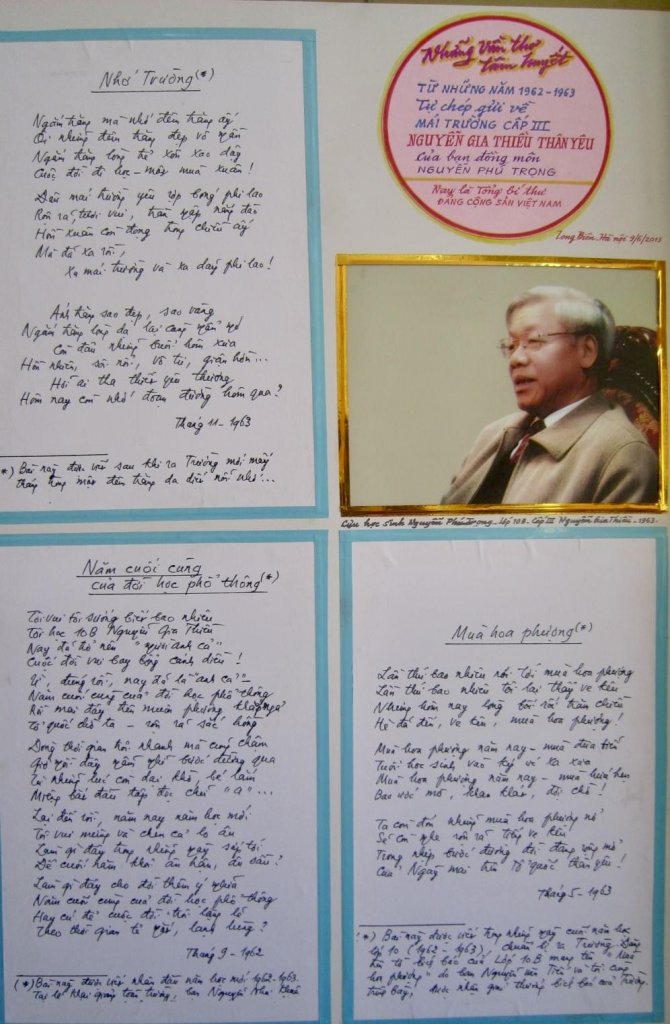 Nhớ Trường (*)
Ngắm trăng mà nhớ đêm trăng ấy
Ôi những đêm trăng đẹp vô ngần
Ngắm trăng lòng thế xốn xao dậy
Cuộc đời đi học - mấy mùa xuân!
Dưới mái trường yêu rợp bóng phi lao
Rộn rã, tươi vui, tràn ngập nắng đào
Hồn xuân còn đọng trong chiều ấy
Mà đã xa rồi,
Xa mái trường và xa dãy phi lao!
Ánh trăng sao đẹp, sao vàng
Ngắm trăng lòng dạ lại càng ngẩn ngơ
Còn đâu những buổi hôm xưa
Hồn nhiên, sôi nổi, vô tư, giận hờn...
Hỏi ai tha thiết yêu thương
Hôm nay còn nhớ đoạn đường hôm qua?
Tháng 11 - 1963
*) Bài này được viết sau khi ra Trường mới mấy
tháng trong một đêm trăng da diết nỗi nhớ...
Những Vần thơ
tâm huyết
TỪ NHỮNG NĂM 1962 - 1963
Tự chép gửi về
MÁI TRƯỜNG CẤP III
NGUYỄN GIA THIỀU THÂN YÊU
Của bạn đồng môn
NGUYỄN PHÚ TRỌNG
Nay là Tổng bí thư
ĐẢNG CỘNG SẢN VIỆT NAM
Long Biên - Hà nội 9/6/2013
Cựu học sinh Nguyễn Phú Trọng - Lớp 10B - Cấp III Nguyễn Gia Thiều - 1963 -
Năm cuối cùng
của đời học phổ thông (*)
Tôi vui tôi sướng biết bao nhiêu
Tôi học 10B Nguyễn Gia Thiều
Nay đã trở nên "người anh cả"
Cuộc đời vui bay bổng cánh diều!
Ừ, đúng rồi, nay đã là "anh cả"
Năm cuối cùng của đời học phổ thông
Rồi mai đây trên muôn phương
Tổ quốc chờ ta - rộn rã sắc hồng
Dòng thời gian trôi nhanh mà cũng chậm
Giờ tôi đây ngẫm nhớ bước đường qua
Từ những lúc còn dại khờ, bé lắm
Miệng bắt đầu tập đọc chữ "a"...
Lại đến rồi, năm nay năm học mới
Tôi vui mừng và chen cả lo âu
Làm gì đây trong những ngày sắp tới
Để cuối năm khỏi ân hận, âu sầu?
Làm gì đây cho đời thêm ý nghĩa
Năm cuối cùng của đời học phổ thông
Hay cứ để cuộc đời trôi lặng lẽ
Theo thời gian lạnh lùng?
Tháng 9 - 1962
(*) Bài này được viết nhân đầu năm học mới 1962-1963.
Tại lễ khai giảng toàn trường, bạn Nguyễn Như
Mùa hoa phượng (*)
Lần thứ bao nhiêu nói tới mùa hoa phượng
Lần thứ bao nhiêu tôi lại thấy ve kêu
Nhưng hôm nay lòng tôi rất trăm chiều
Hè đã đến, ve kêu, mùa hoa phượng!
Mùa hoa phượng năm nay - mùa đưa tiễn
Tuổi học sinh vào kỷ xa xưa
Mùa hoa phượng năm nay - mùa hứa hẹn
Bao ước mơ, khao khát, đợi chờ!
Ta còn đón những mùa hoa phượng nở
Sẽ còn nghe rộn rã tiếng ve kêu
Trong nhịp bước đường đời đang rộng mở
Của Ngày mai trên Tổ quốc thân yêu!
Tháng 5 - 1963
*) Bài này được viết trong những ngày cuối năm học
lớp 10 (1962 - 1963), chuẩn bị ra Trường. Đăng
của Lớp 10B mang tên "Mùa
hoa phượng" do bạn Nguyễn và tôi cùng
trưng bày, được nhận giải thưởng của Trường.